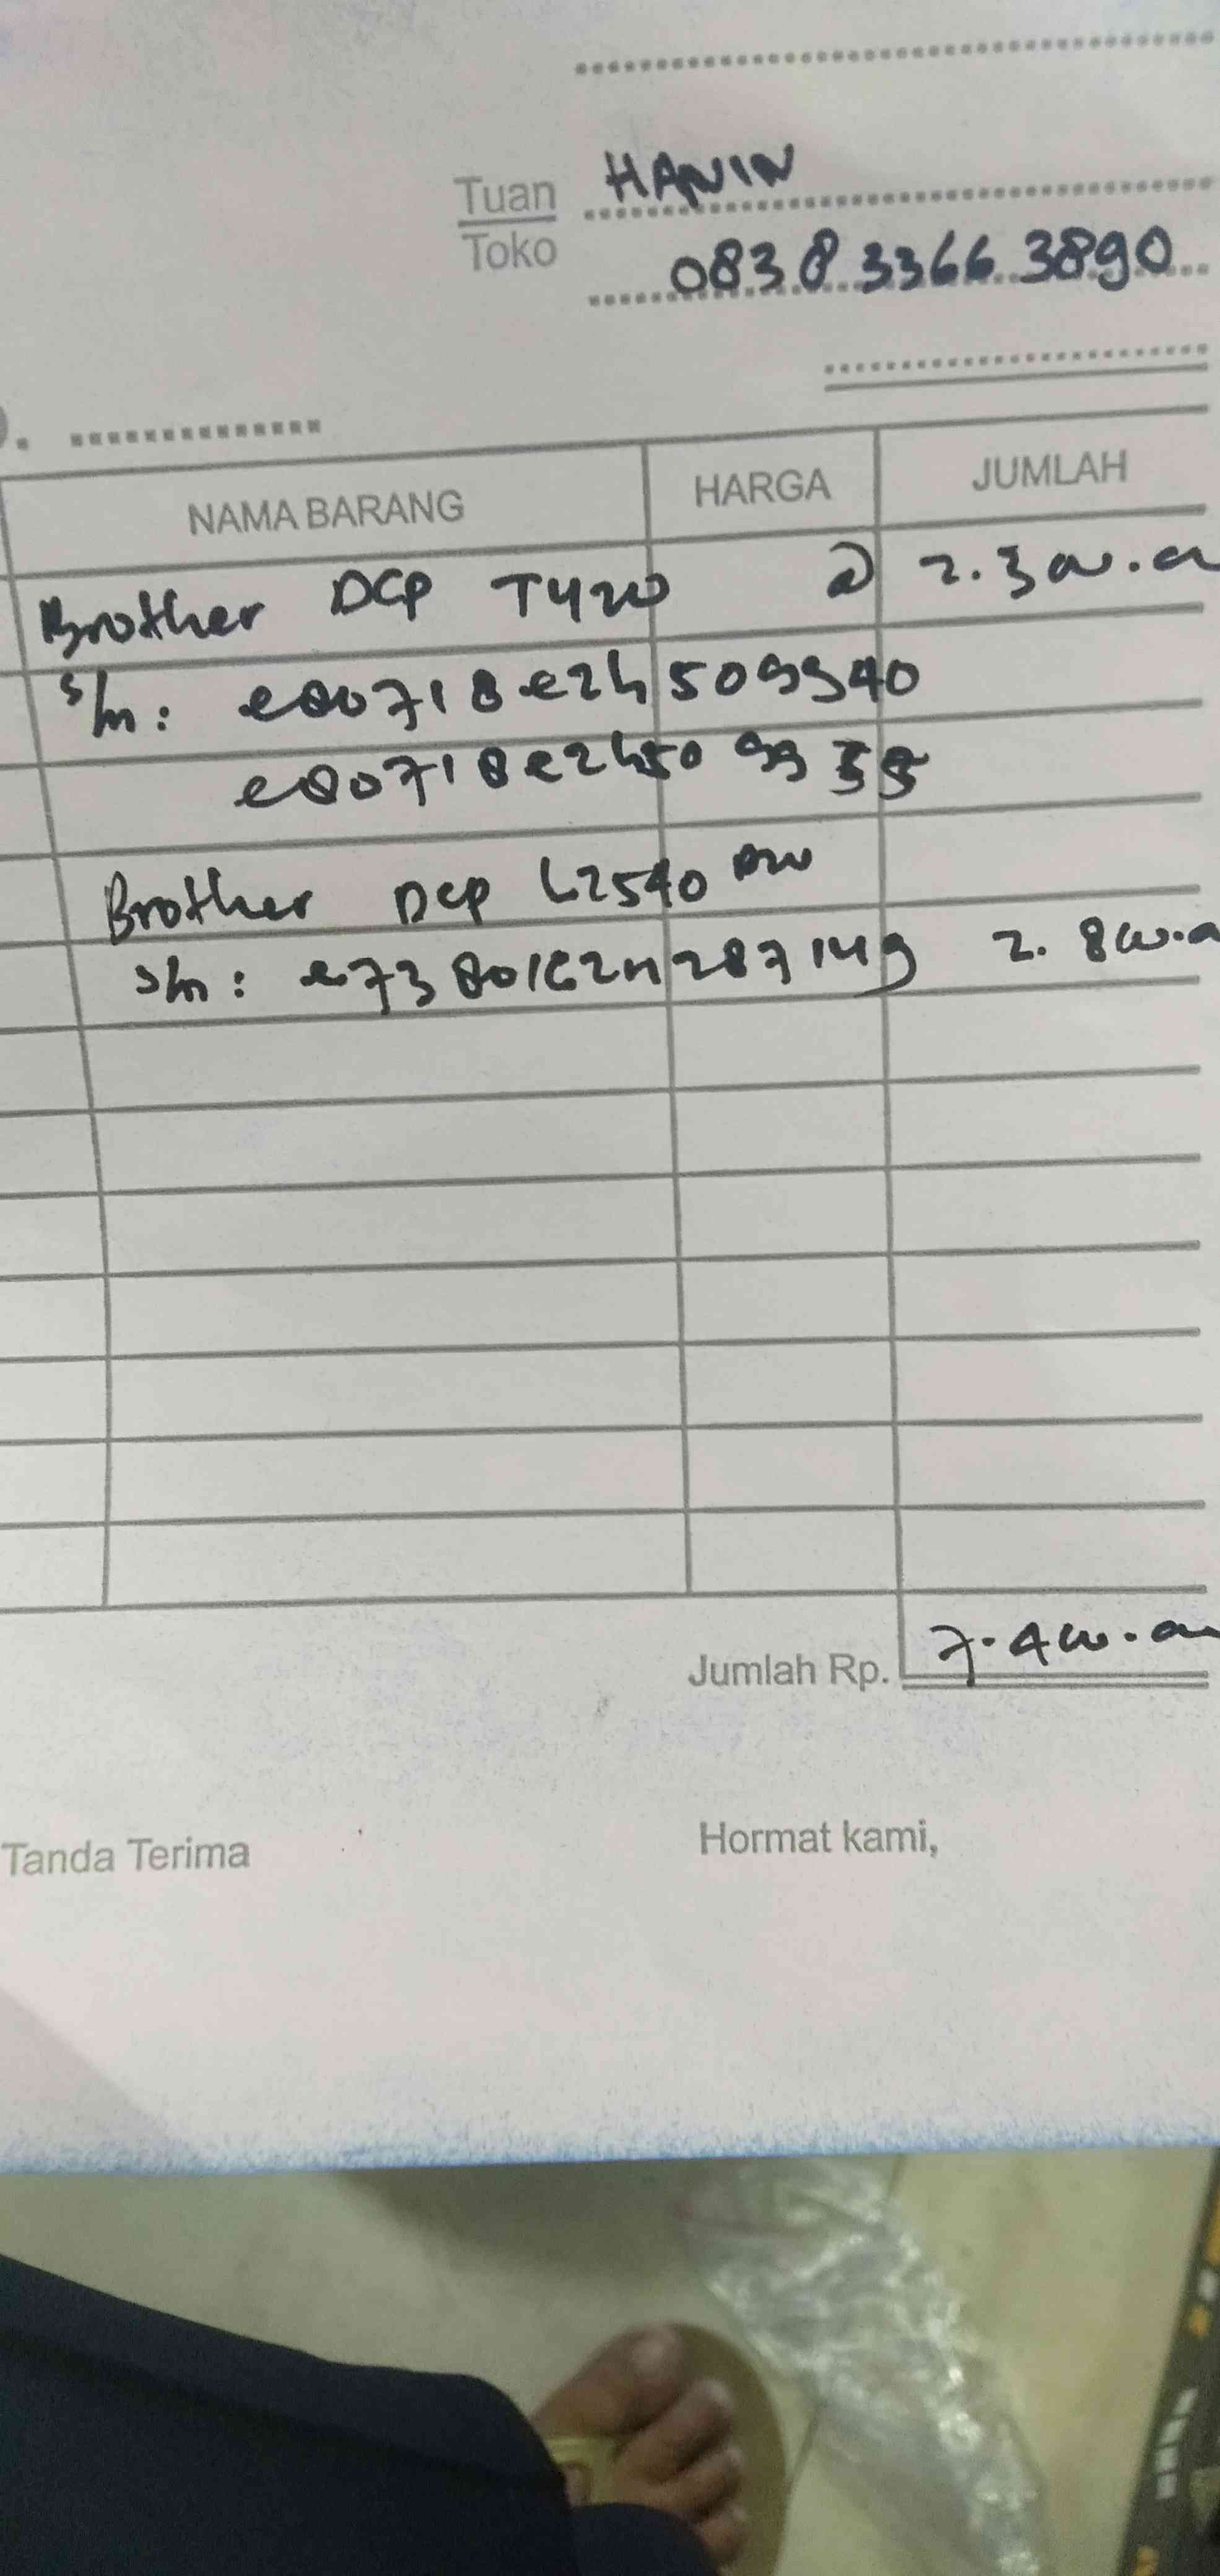 Tuan HANIN
Toko 0838 3366 3890
NAMA BARANG HARGA JUMLAH
Brother DCP T420 @ 2.300.00
s/n: e80718e2h509940
e80718e2h509935
Brother Dcp L2540 DW
s/n: 2.800.0
Jumlah Rp. 7.400.00
Tanda Terima Hormat kami,